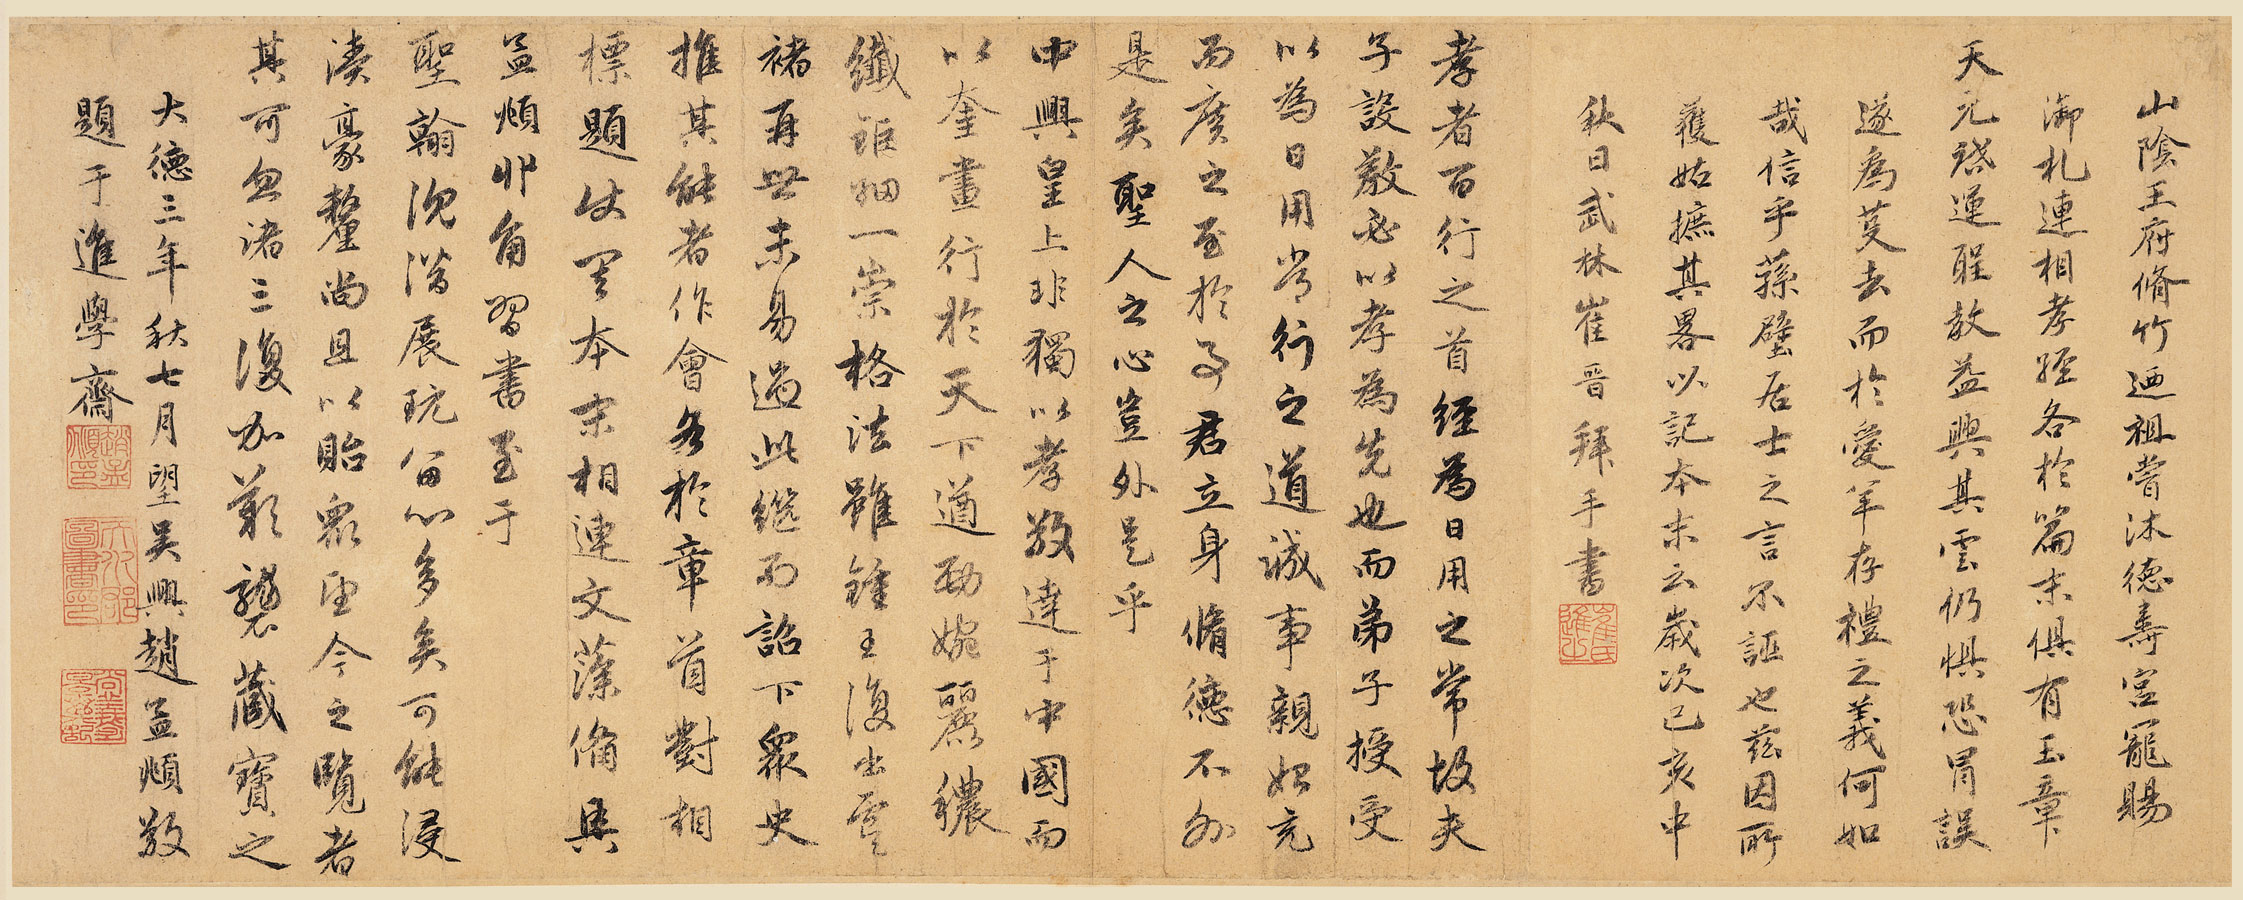 山陰王府脩竹廼祖嘗沐德壽宮寵賜
御札連相孝經各於篇末俱有玉章
天元啓運聖教益興其雲仍惧恐冐誤
遂為芟去而於愛羊存禮之義何如
哉信乎蓀壁居士之言不誣也茲因所
獲姑摭其畧以記本末云歲次己亥中
秋日武林崔晉拜手書
孝者百行之首經為日用之常故夫
子設教必以孝為先也而弟子授受
以為日用常行之道誠事親始充
而廣之至於事君立身脩德不外
是矣聖人之心豈外是乎
中興皇上非獨以孝敬達于中國而
以奎畫行於天下遒勁婉麗穠
纖鉅細一崇格法雖鍾王復出虞
褚再世未易過此繼而詔下眾史
推其能者作會各於章首對相
標題仗畧本末相連文藻俻具
孟頫丱角習書至于
聖翰沉潛展玩留心多矣可能浸
瀆豪釐尚且以貽眾函今之覽者
其可忽諸三復加歎襲藏寶之
大德三年秋七月望吳興趙孟頫敬
題于進學齋